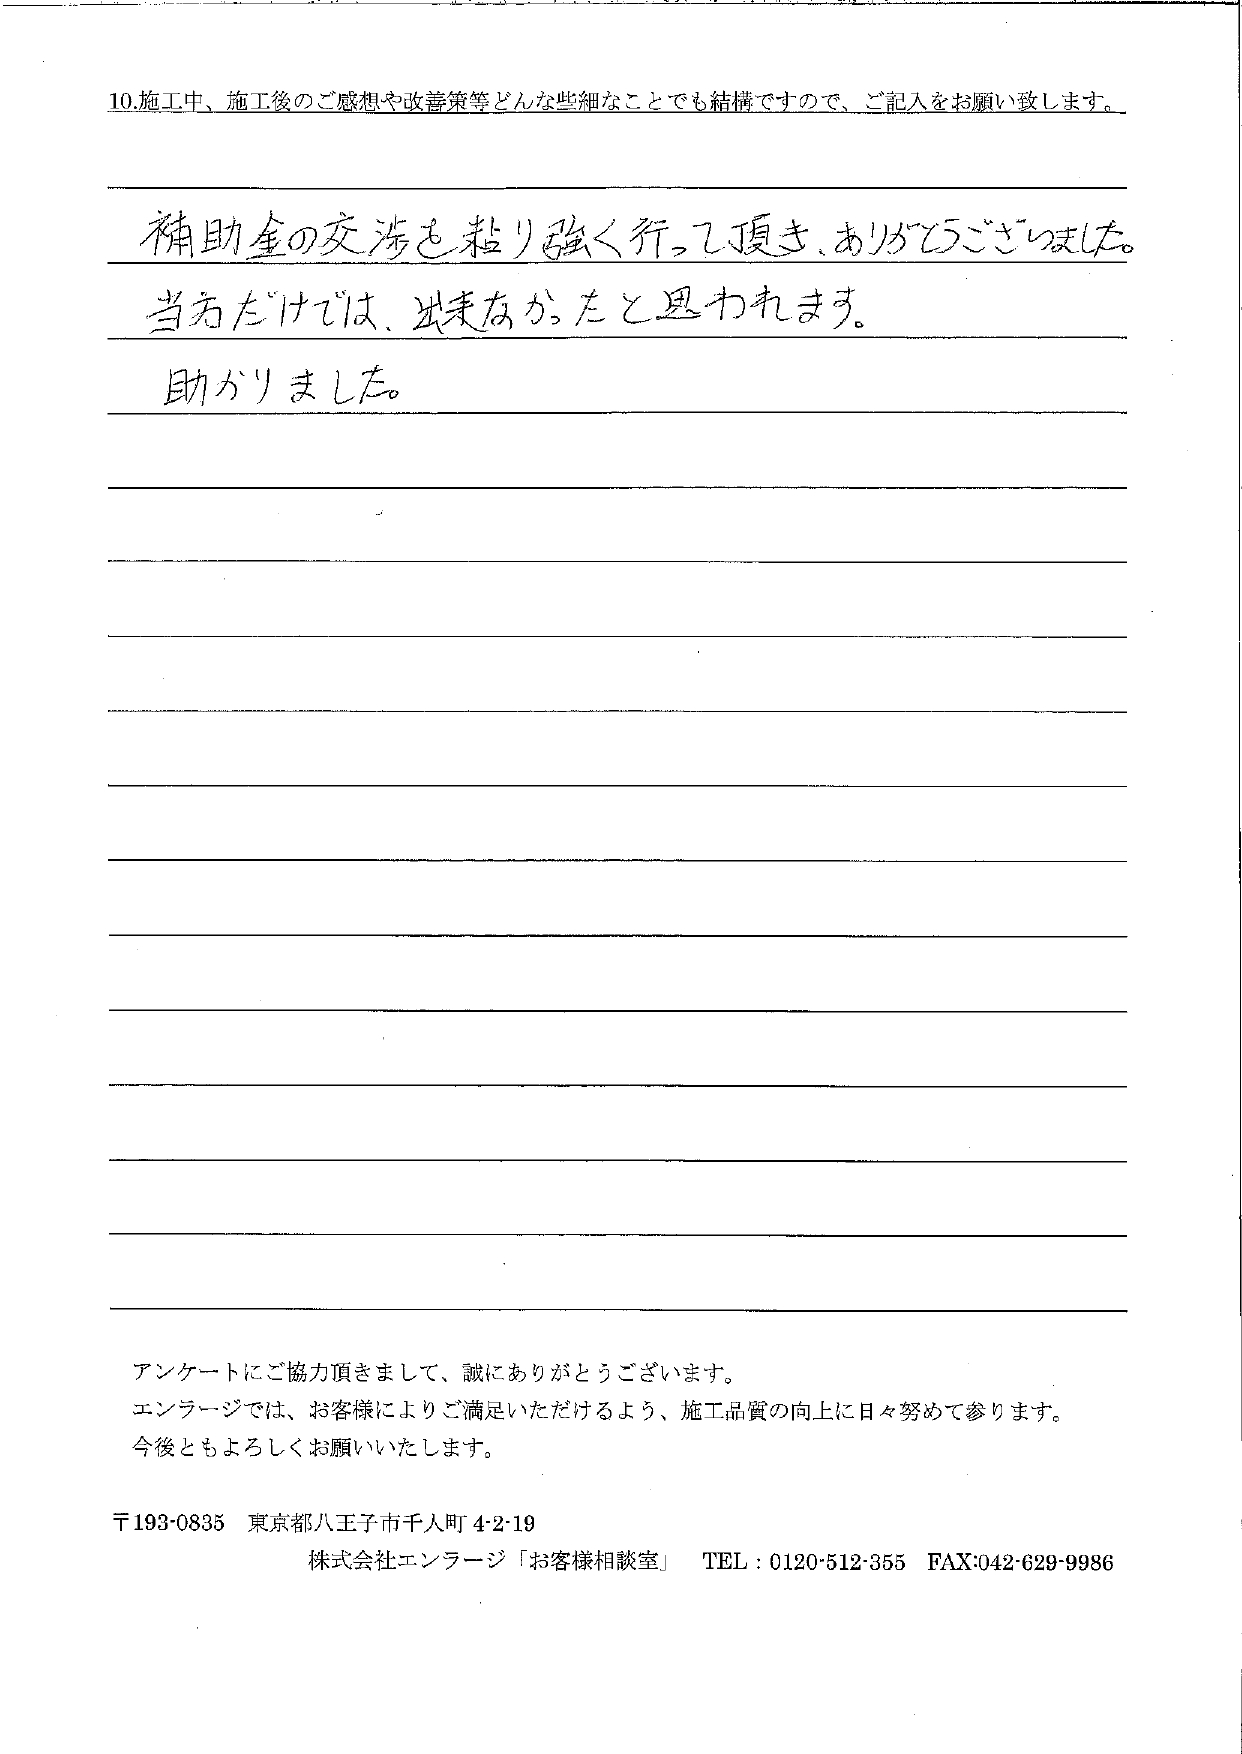 10.施工中、施工後のご感想や改善策等どんな些細なことでも結構ですので、ご記入をお願い致します。
補助金の交渉を粘り強く行って頂き、ありがとうございました。
当方だけでは、出来なかったと思われます。
助かりました。
アンケートにご協力頂きまして、誠にありがとうございます。
エンラージでは、お客様によりご満足いただけるよう、施工品質の向上に日々努めて参ります。
今後ともよろしくお願いいたします。
〒193-0835 東京都八王子市千人町 4-2-19
株式会社エンラージ「お客様相談室」 TEL : 0120-512-355 FAX:042-629-9986